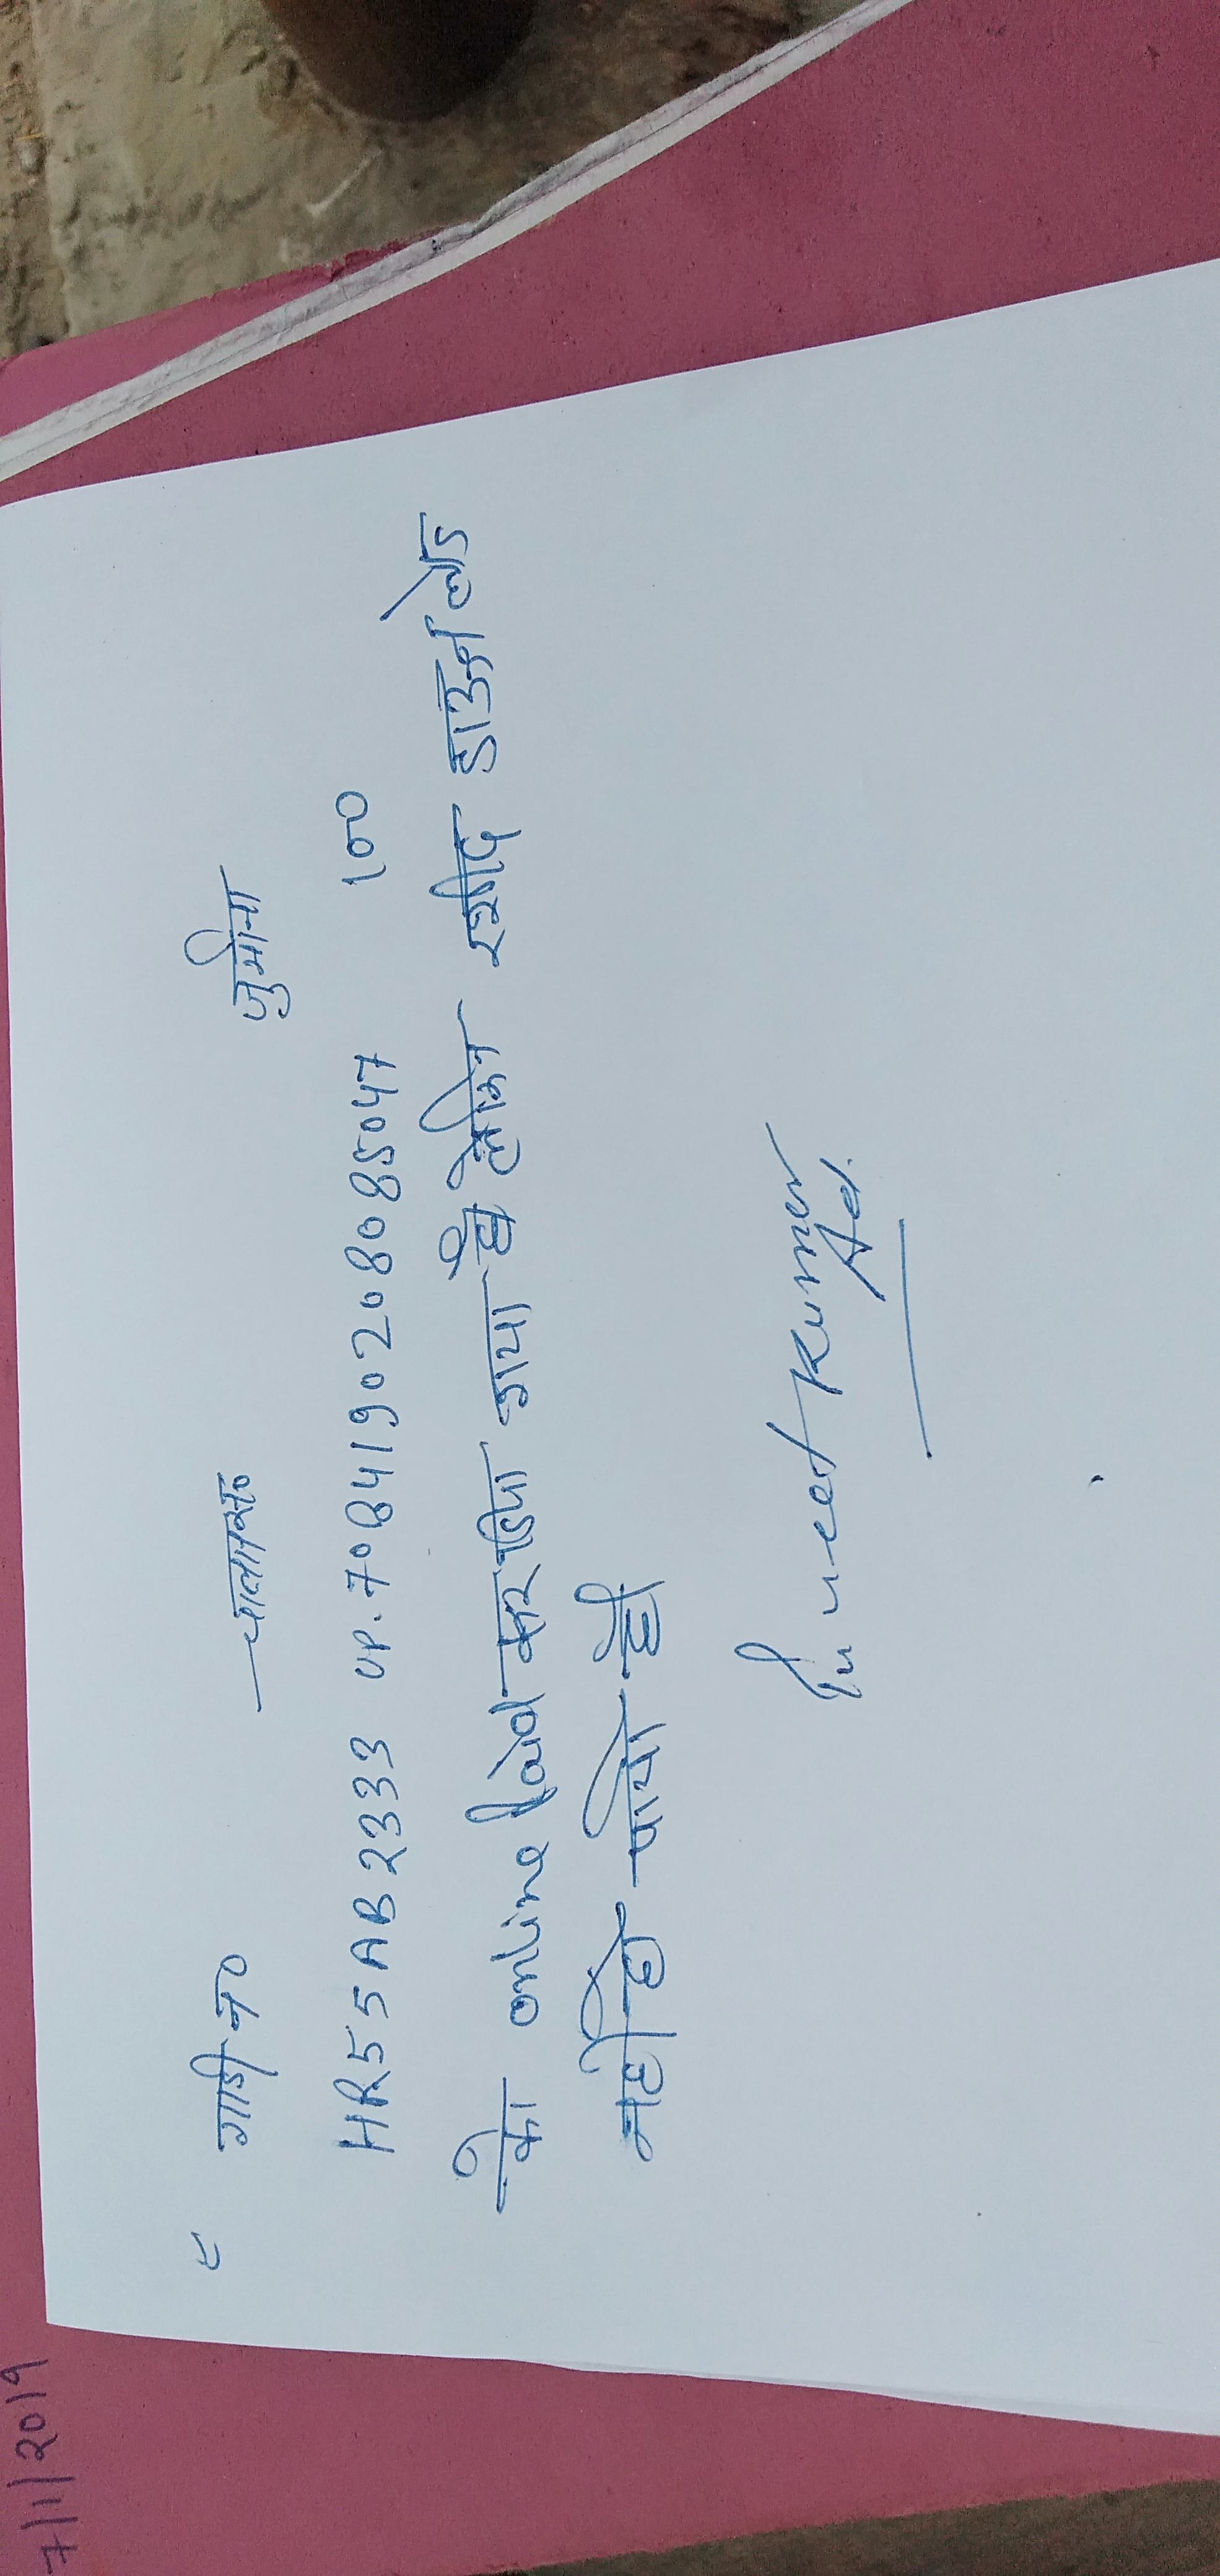 7/1/2019
गाडी न० चालान न० जुर्माना
HR55AB2333 UP.7084190208085047 100
को online paid कर दिया गया है लेकिन रसीद डाउनलोड
नही हो पायी है।
Puneet Kumar
Ad.